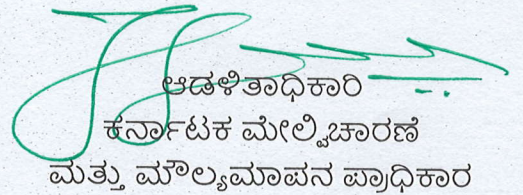 ಆಡಳಿತಾಧಿಕಾರಿ
ಕರ್ನಾಟಕ ಮೇಲ್ವಿಚಾರಣೆ
ಮತ್ತು ಮೌಲ್ಯಮಾಪನ ಪ್ರಾಧಿಕಾರ